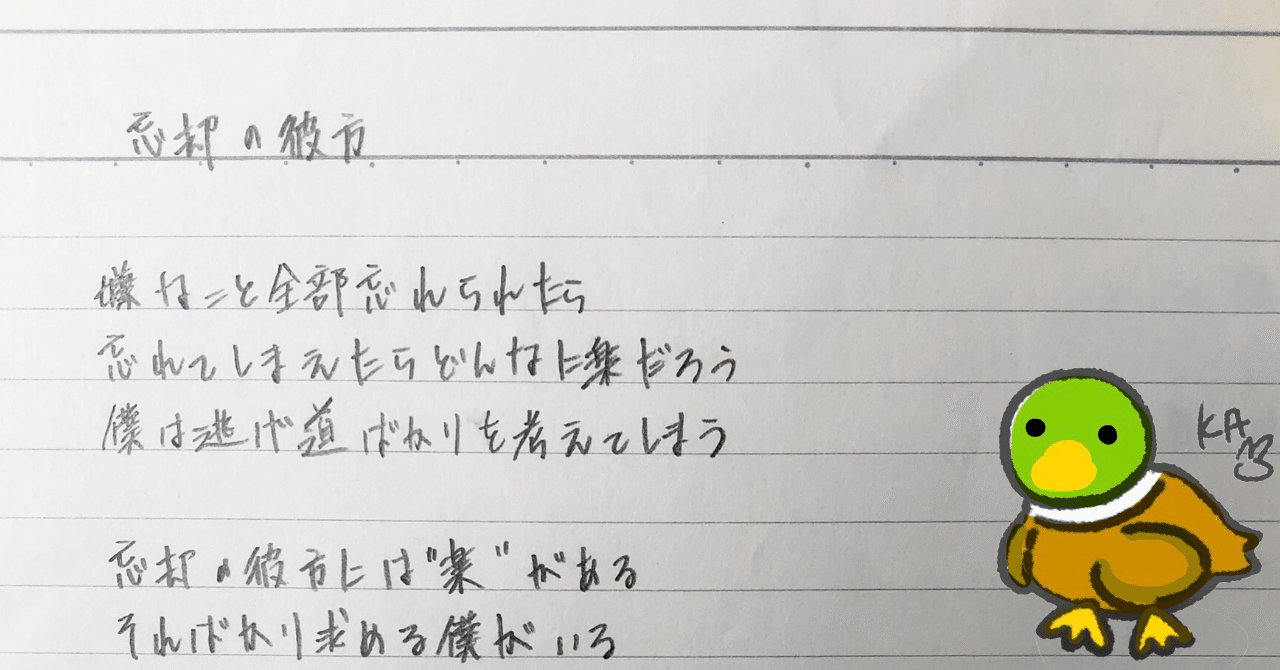 忘却の彼方
嫌なこと全部忘れられたら
忘れてしまえたらどんなに楽だろう
僕は逃げ道ばかりを考えてしまう
忘却の彼方には"楽"がある
そればかり求める僕がいる
KA